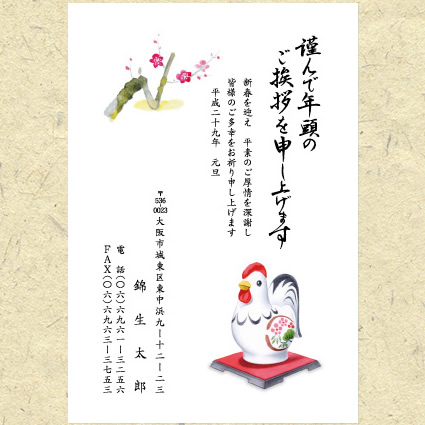 謹んで年頭の
ご挨拶を申し上げます
新春を迎え 平素のご厚情を深謝し
皆様のご多幸をお祈り申し上げます
平成二十九年 元旦
〒536-0023
大阪市城東区東中浜九ー十二ー二三
錦生太郎
電話(〇六)六九六一ー三二五六
FAX(〇六)六九六三ー三七五三